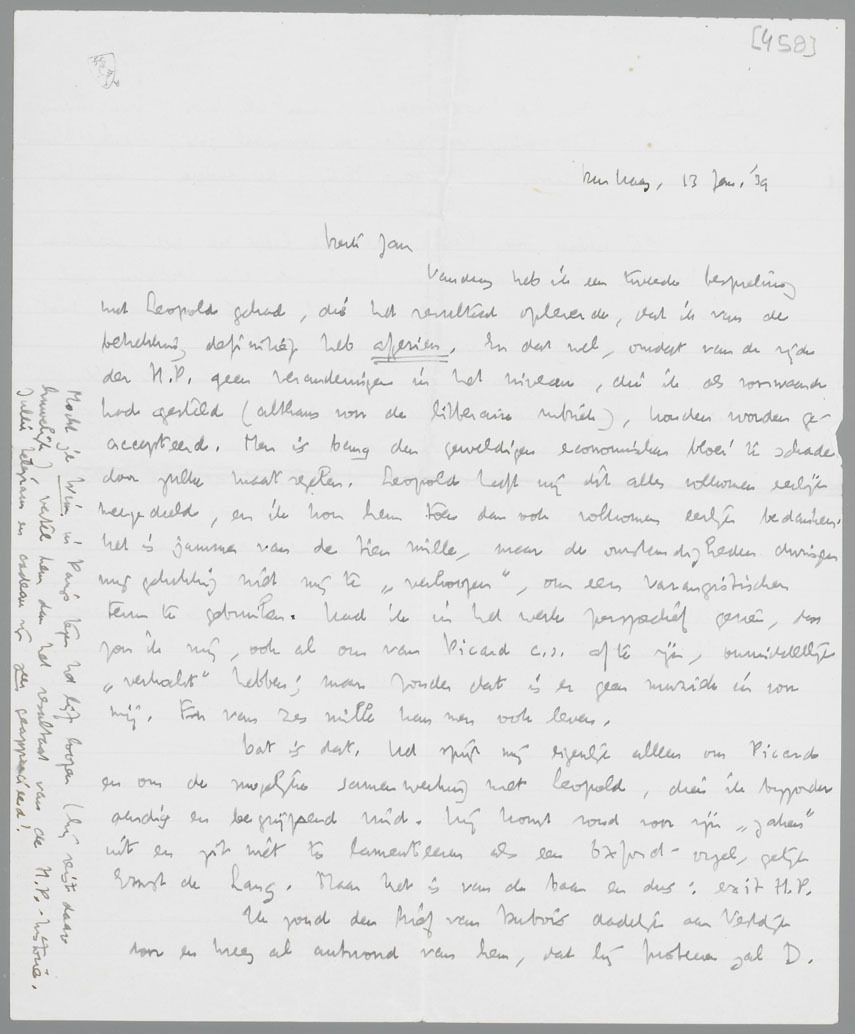 [458]
den Haag, 13 Jan. '39
Beste Jan
Vandaag heb ik een tweede bespreking
met Leopold gehad, die het resultaat opleverde, dat ik van de
betrekking definitief heb afgezien. En dat wel, omdat van de zijde
der H.P. geen veranderingen in het niveau, die ik als voorwaarde
had gesteld (althans voor de litteraire rubriek), konden worden ge-
accepteerd. Men is bang den geweldigen economischen bloei te schaden
door zulke maatregelen. Leopold heeft mij dit alles volkomen eerlijk
meegedeeld, en ik kon hem toen dan ook volkomen eerlijk bedanken.
Het is jammer van de tien mille, maar de omstandigheden dwingen
mij gelukkig niet mij te „verkoopen”, om een
term te gebruiken. Had ik in het werk perspectief gezien, dan
zou ik mij, ook al om van Picard c.s. af te zijn, onmiddellijk
„verkocht” hebben; maar zonder dat is er geen muziek in voor
mij. En van zes mille kan men ook leven.
Dat is dat. Het spijt mij eigenlijk alleen om Picard
en om de mogelijke samenwerking met Leopold, dien ik bijzonder
aardig en begrijpend vind. Hij komt rond voor zijn „zaken”
uit en zit niet te lamenteeren als een Oxford-vogel, gelijk
Ernst de Lang. Maar het is van de baan en dus: exit H.P.
Ik zond den brief van Dubois dadelijk aan Verdijk
door en kreeg al antwoord van hem, dat hij probeeren zal D.
Mocht je Wim in Parijs tegen het lijf loopen (hij reist daar
huwelijk) vertel hem dan het resultaat van de H.P.-historie.
Jullie telegram en cadeau zijn zeer geapprecieerd!